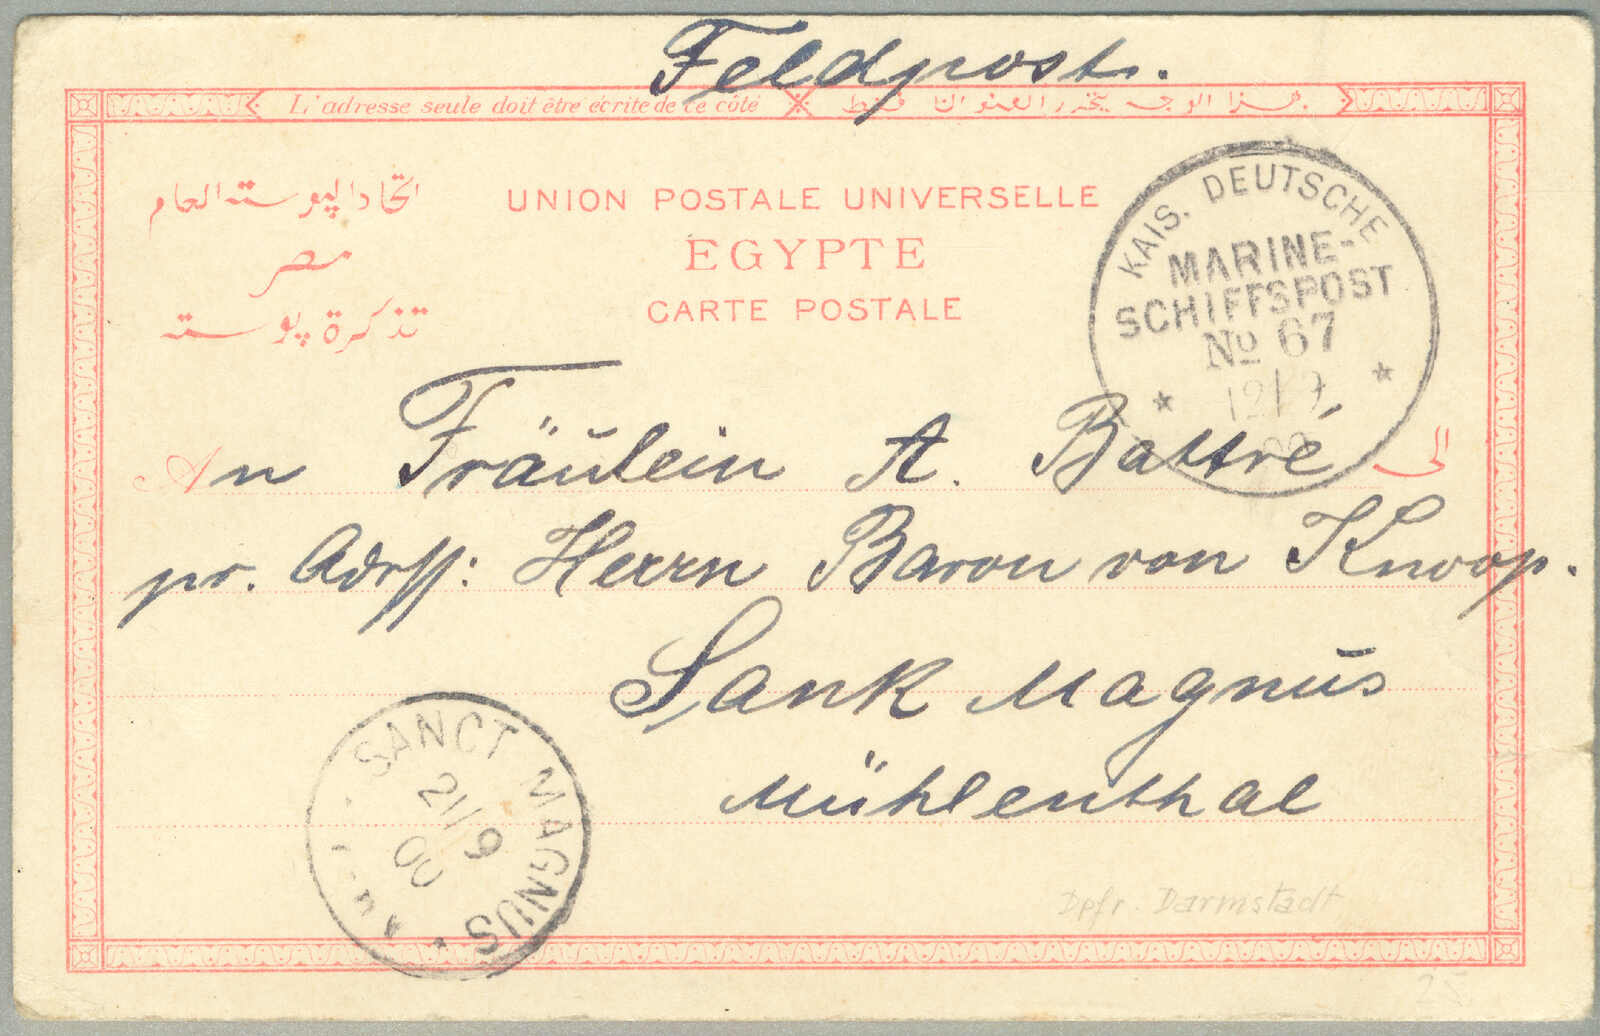 Feldpost.
L'adresse seule doit être écrite de ce côté
هذا الوجه يتحرر العنوان فقط
اتحاد البوسته العام
مصر
تذكرة بوسته
UNION POSTALE UNIVERSELLE
EGYPTE
CARTE POSTALE
KAIS. DEUTSCHE
MARINE-
SCHIFFSPOST
No 67
12/9
00
An Fräulein A. Battré الى
pr. Adrss: Herrn Baron von Knoop.
Sank Magnus
Mühlenthal
SANCT MAGNUS
21/9
00
Dpfr. Darmstadt
25